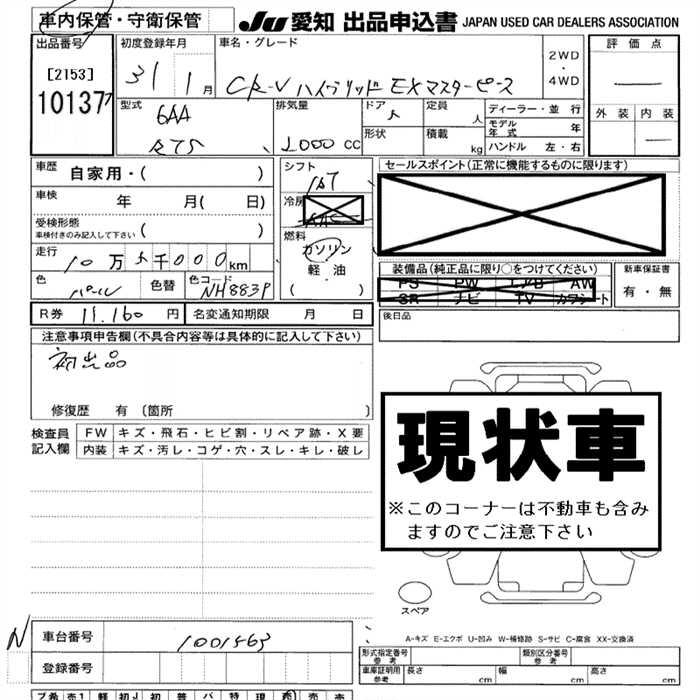 車内保管・守衛保管 JU 愛知 出品申込書 JAPAN USED CAR DEALERS ASSOCIATION
出品番号 [2153] 10137
初度登録年月 31 1 月
車名・グレード CR-V ハイブリッド EXマスターピース
2WD ・ 4WD
評価点
外装 内装
型式 6AA RT5
排気量 2000 cc
ドア 形状
定員 人 積載 kg
ディーラー・並行
モデル年式 年
ハンドル 左・右
車歴 自家用・( )
車検 年 月( 日)
受検形態 車検付きのみ記入して下さい ( )
走行 10万5千000km
色 パール 色替 色コード NH883P
シフト
冷房
燃料 ガソリン 軽油 ( )
セールスポイント(正常に機能するものに限ります)
装備品(純正品に限り○をつけてください)
PS PW AW
SR ナビ TV カワシート
新車保証書 有・無
後日品
R券 11,160 円 名変通知期限 月 日
注意事項申告欄(不具合内容等は具体的に記入して下さい)
初出品
修復歴 有 (箇所 )
検査員記入欄
FW キズ・飛石・ヒビ割・リペア跡・X要
内装 キズ・汚レ・コゲ・穴・スレ・キレ・破レ
現状車
※このコーナーは不動車も含み
ますのでご注意下さい
スペア
A-キズ E-エクボ U-凹み W-補修跡 S-サビ C-腐食 XX-交換済
N 車台番号 1001463
登録番号
形式指定番号 参考 類別区分番号 参考
車庫証明用 参考 長さ 幅 高さ